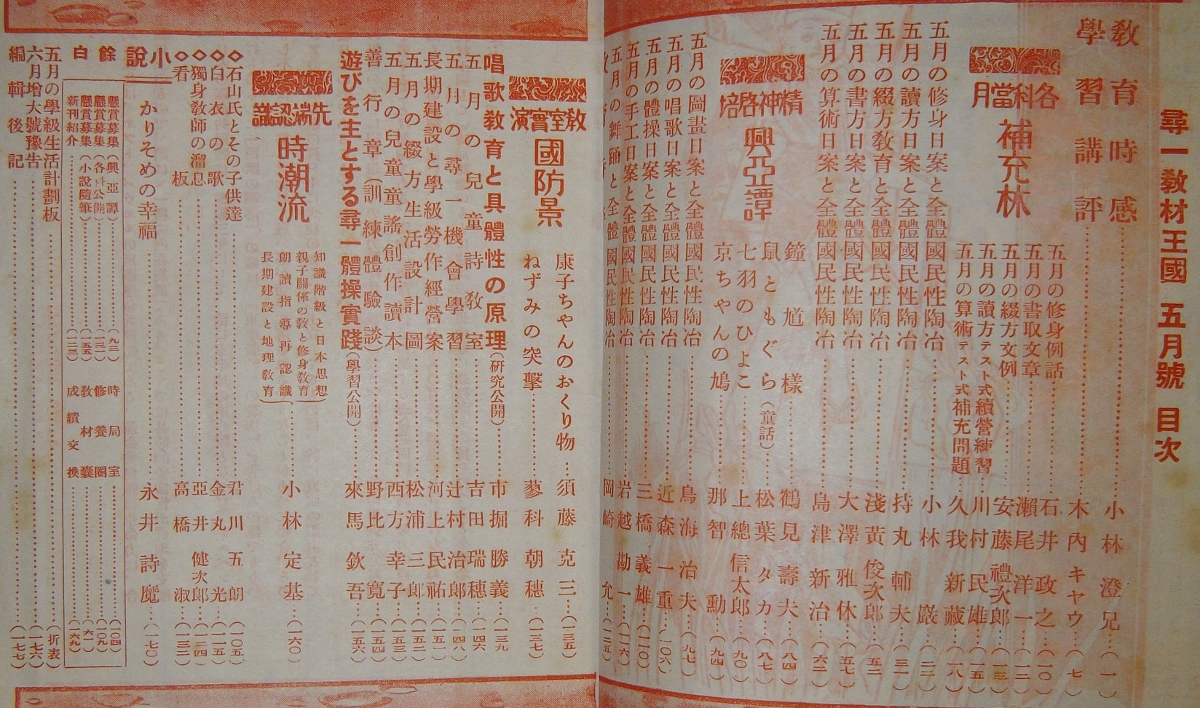 尋一教材王國 五月號 目次
教育時感……小林澄兄…(一)
學習講評……木內キヤウ…(七)
各科當月
補充林
五月の修身例話……石井政之…(一〇)
五月の書取文章……瀨尾洋一…(一二)
五月の綴方文例……安藤禮次郎…(一三)
五月の讀方テスト式續營練習……川村民雄…(一五)
五月の算術テスト式補充問題……久我新藏…(一八)
五月の修身日案と全體國民性陶冶……小林巖…(二二)
五月の讀方日案と全體國民性陶冶……持丸輔夫…(三一)
五月の綴方教育と全體國民性陶冶……淺黃俊次郎…(五二)
五月の書方日案と全體國民性陶冶……大澤雅休…(五七)
五月の算術日案と全體國民性陶冶……島津新治…(六二)
精神啓培
興亞譚
鐘馗樣……鶴見壽夫…(八四)
鼠ともぐら(童話)……松葉タカ…(八七)
七羽のひよこ……上總信太郎…(九〇)
京ちやんの鳩……那智勳…(九四)
五月の圖畫日案と全體國民性陶冶……鳥海治夫…(九七)
五月の唱歌日案と全體國民性陶冶……近森一重…(一〇六)
五月の體操日案と全體國民性陶冶……三橋義雄…(一一〇)
五月の手工日案と全體國民性陶冶……岩越勘一…(一二六)
五月の舞踊と全體國民性陶冶……岡崎允
教室實演
國防景
康子ちやんのおくり物…須藤克三…(一三五)
ねずみの突擊……蓼科朝穗…(一三七)
唱歌教育と具體性の原理(研究公開)……市掘勝義…(一三九)
五月の兒童詩教室……吉田瑞穗…(一四六)
五月の尋一機會學習……辻村治郎…(一四八)
長期建設と學級勞作經營案……河上民祐…(一五一)
五月の綴方生活設計圖……松浦三郎…(一五二)
五月の兒童童謠創作讀本……西方幸子…(一五三)
善行章(訓練體驗談)……野比寬…(一五四)
遊びを主とする尋一體操實踐(學習公開)……來馬欽吾…(一五六)
先端認識
時潮流
知識階級と日本思想
親子關係の教と修身教育
朗讀指導再認識
長期建設と地理教育
小林定基…(一六〇)
◇石山氏とその子供達……君川五朗…(一〇五)
◇白衣の歌……金丸光
◇獨身教師の溜息……亞井健次郎
◇看板……高橋淑…(一三三)
小說
かりそめの幸福……永井詩魔…(一七〇)
餘白
懸賞募集(興亞譚)
懸賞募集(各科公開)
懸賞募集(小說隨筆)
新刊紹介
時局室
修養閣
教材囊
成績交換
五月の學級生活計劃板……(折表)
六月增大號豫告……(一七六)
編輯後記……(一七七)